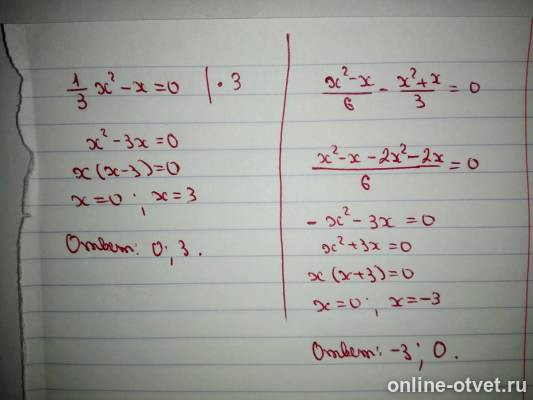 1/3 x² - x = 0 | · 3
x² - 3x = 0
x (x - 3) = 0
x = 0 ; x = 3
Ответ: 0 ; 3.
(x² - x)/6 - (x² + x)/3 = 0
(x² - x - 2x² - 2x)/6 = 0
- x² - 3x = 0
x² + 3x = 0
x (x + 3) = 0
x = 0 ; x = -3
Ответ: -3 ; 0.
online-otvet.ru